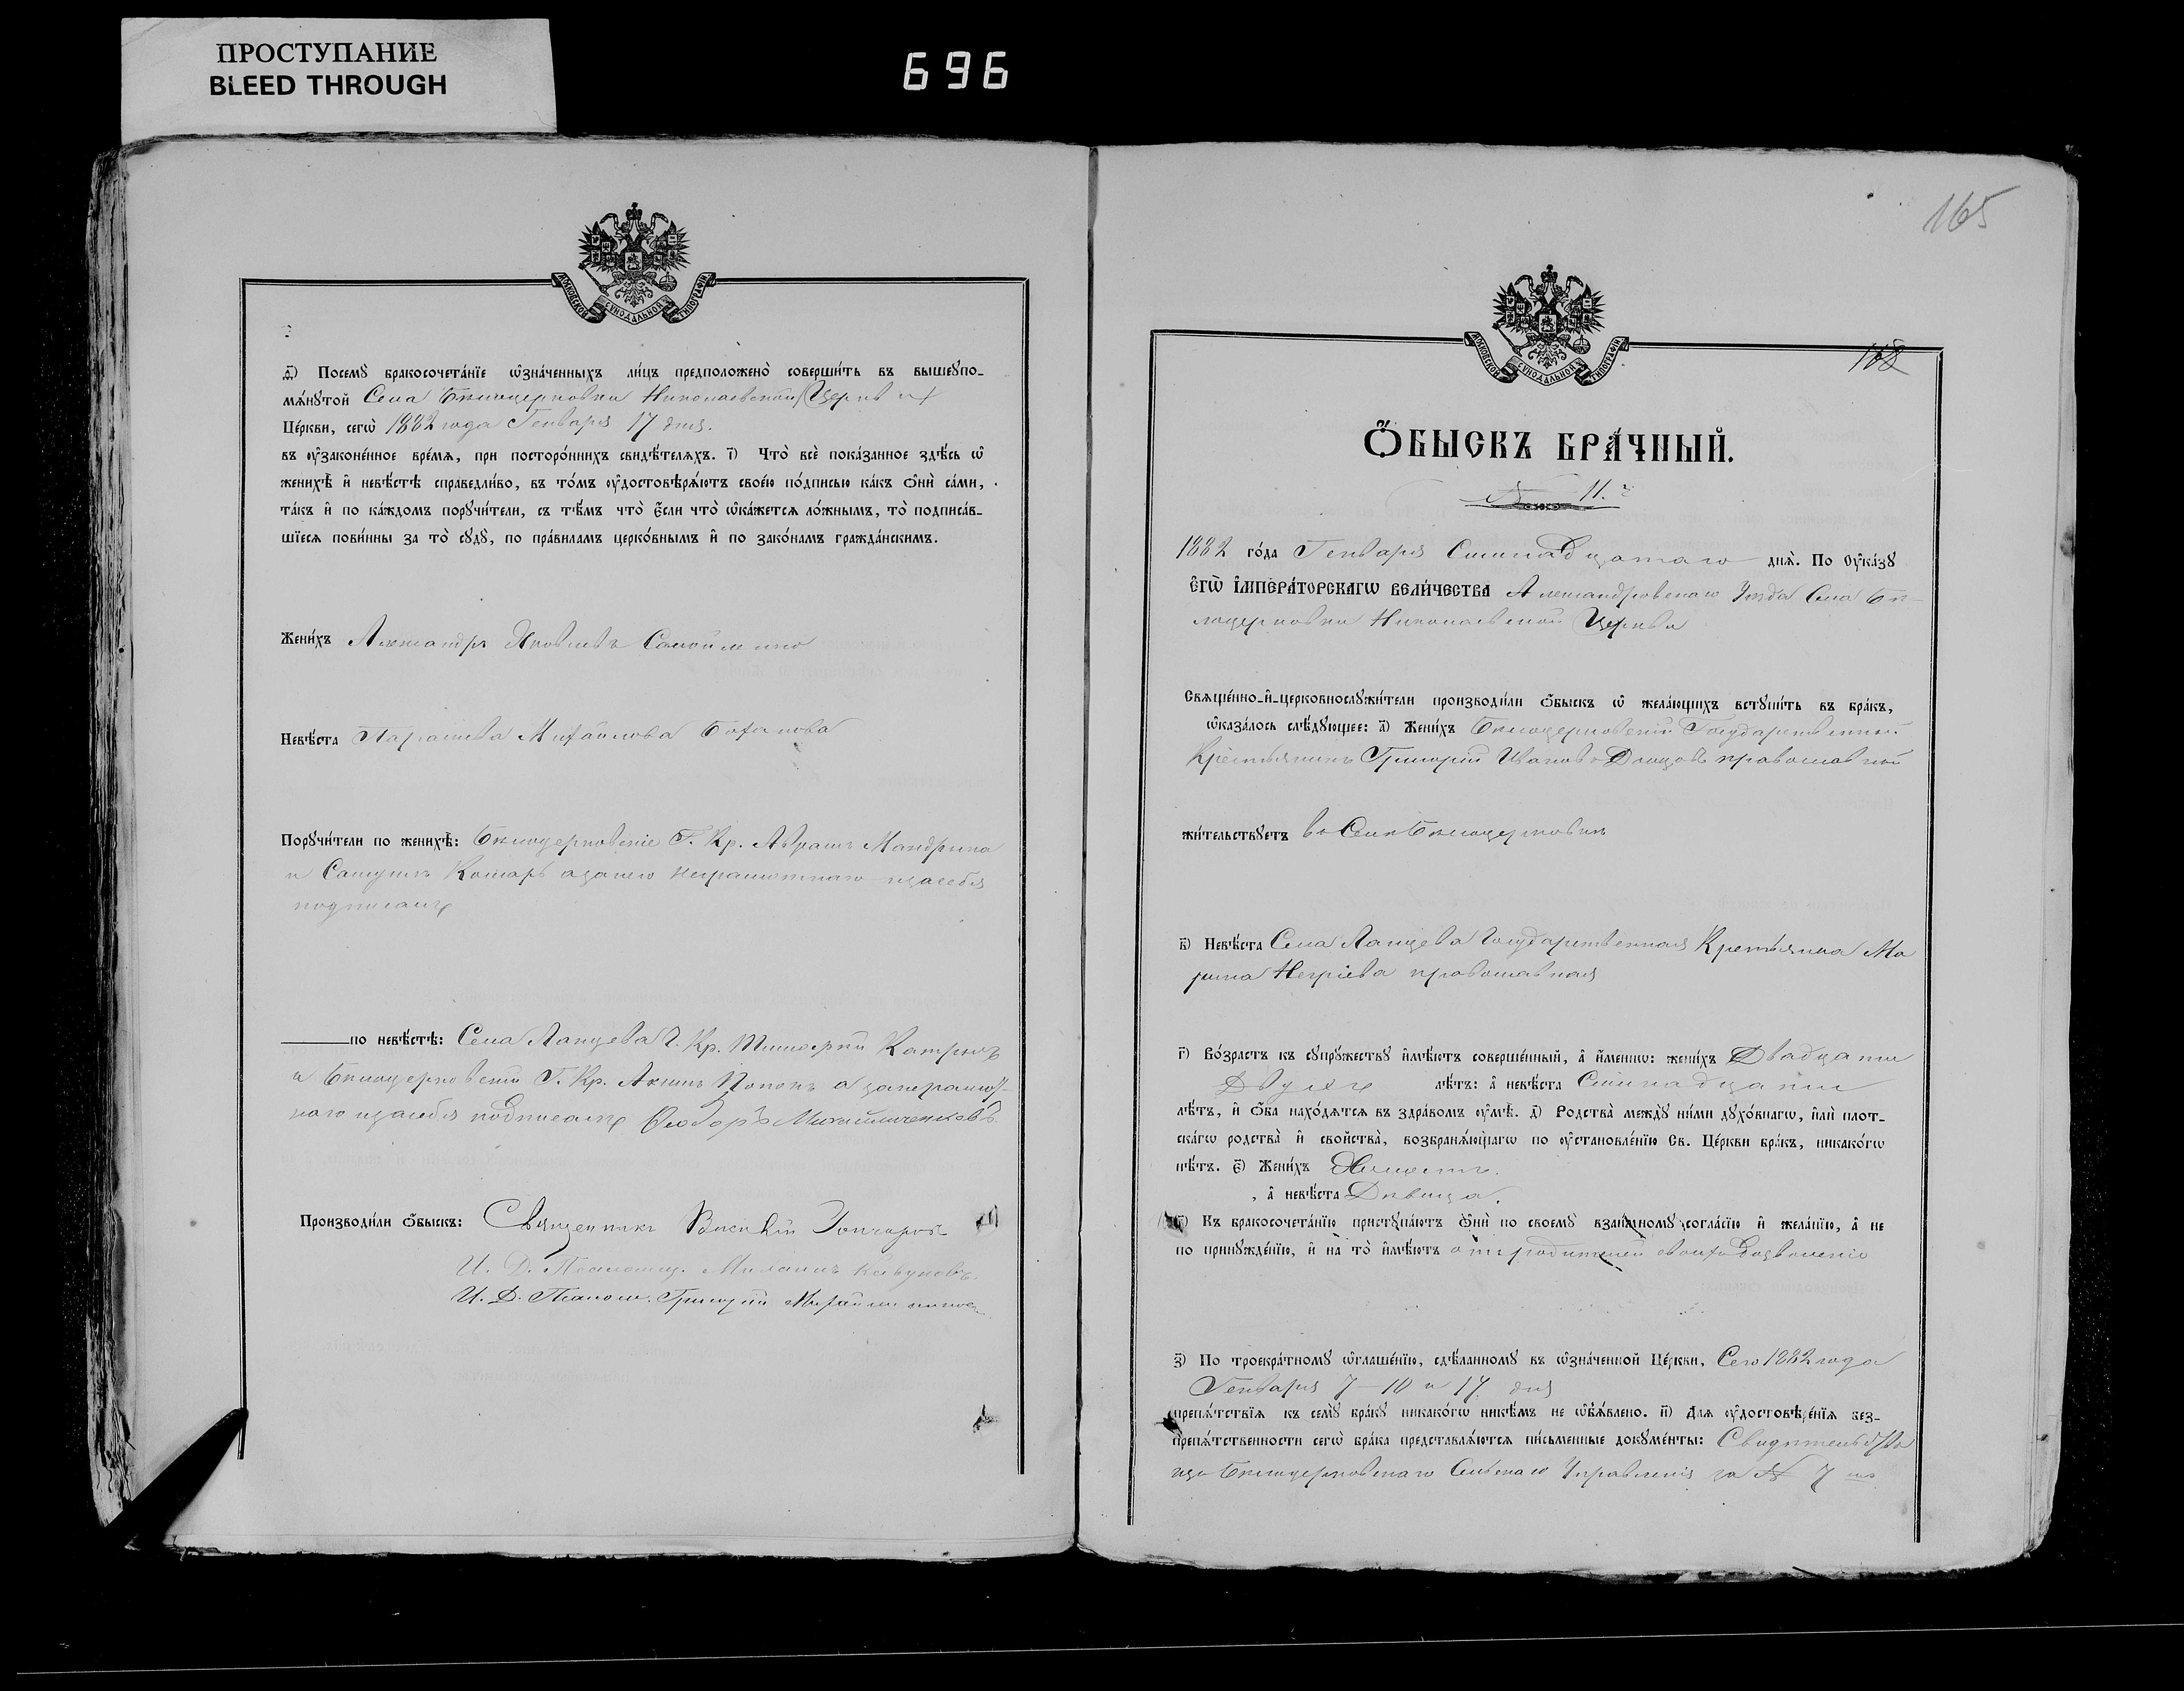 ПРОСТУПАНИЕ
BLEED THROUGH
696
МОСКОВСКОЙ СѴНОДАЛЬНОЙ ТИПОГРАФІИ
ѳ҃) Посемꙋ бракосочетáнїе ѡ҆знáченныхъ ли́цъ предположенò совершѝть въ вышеꙋпо-
мѧ́нꙋтой Села Бѣлоцерковки Николаевской Церкви
Це́ркви, сегѡ̀ 1882 года Генваря 17 дня.
въ ᲂу҆зако́ненное вре́мѧ, при посторо́ннихъ свидѣ́телѧхъ. і҃) Чтò всѐ пока́занное здѣ́сь ѡ҆
женихѣ̀ и҆ невѣ́стѣ справедли́во, въ то́мъ ᲂу҆достовѣрѧ́ютъ свое́ю по́дписью ка́къ ѻ҆нѝ са́ми,
та́къ и҆ по ка́ждомъ порꙋчи́тели, съ тѣ́мъ чтò є҆́сли чтò ѡ҆ка́жетсѧ ло́жнымъ, тò подписа́в-
шїесѧ пови́нны за тò сꙋдꙋ̀, по пра́виламъ церко́внымъ и҆ по зако́намъ гражда́нскимъ.
Жени́хъ Александръ Яковлевъ Самойленко
Невѣ́ста Параскева Михайлова
Порꙋчи́тели по женихѣ̀: Бѣлоцерковскіе Г. Кр. Авраамъ Мандрыка
и Самуилъ Кошарь а за него неграмотнаго и за себя
подписался
по невѣ́стѣ: Села Ланцева Г. Кр. Тимофей
и Бѣлоцерковскій Г. Кр. Акимъ Попокъ а за неграмот-
наго и за себя подписался Ѳеодоръ Михайличенковъ.
Производи́ли ѻ҆́быскъ: Священникъ Василій Гончаровъ
И. Д. Псаломщ. Михаилъ
И. Д. Псалом. Григорій
165
168
МОСКОВСКОЙ СѴНОДАЛЬНОЙ ТИПОГРАФІИ
Ѻ҆́БЫСКЪ БРА́ЧНЫЙ.
№ 11.й
1882 го́да Генваря Семнадцатаго днѧ̀. По Оу҆ка́зꙋ
Е҆ГѠ̀ И҆МПЕРА́ТОРСКАГѠ ВЕЛИ́ЧЕСТВА Александровскаго Уѣзда Села Бѣ-
лоцерковки Николаевской Церкви
Свѧще́нно-и҆-церковнослꙋжи́тели производи́ли ѻ҆́быскъ ѡ҆ жела́ющихъ встꙋпи́ть въ бра́къ,
ѡ҆каза́лось слѣ́дꙋющее: а҃) Жени́хъ Бѣлоцерковскій Государственный
Крестьянинъ Григорій Ивановъ православной
жи́тельствꙋетъ въ Селѣ Бѣлоцерковкѣ
в҃) Невѣ́ста Села Ланцева Государственная Крестьянка Ма
рина Негріева православная
г҃) Во́зрастъ къ сꙋпрꙋ́жествꙋ и҆мѣ́ютъ соверше́нный, а҆ и҆́меннѡ: жени́хъ Двадцати
Двухъ лѣ́тъ: а҆ невѣ́ста Семнадцати
лѣ́тъ, и҆ ѻ҆́ба нахо́дѧтсѧ въ здра́вомъ ᲂу҆мѣ̀. д҃) Родства̀ междꙋ̀ ни́ми дꙋхо́внагѡ, и҆лѝ плот-
ска́гѡ родства̀ и҆ свойства̀, возбранѧ́ющагѡ по ᲂу҆становле́нїю Св. Це́ркви бра́къ, никако́гѡ
нѣ́тъ. є҃) Жени́хъ Холостъ.
, а҆ невѣ́ста Дѣвица.
ѕ҃) Къ бракосочета́нїю пристꙋпа́ютъ ѻ҆нѝ по своемꙋ̀ взаи́мномꙋ согла́сїю и҆ жела́нїю, а҆ не
по принꙋжде́нїю, и҆ на̀ тò и҆мѣ́ютъ отъ родителей своихъ дозволеніе
з҃) По троекра́тномꙋ ѡ҆глаше́нїю, сдѣ́ланномꙋ въ ѡ҆зна́ченной Це́ркви, Сего 1882 года
Генваря 7 – 10 и 17 дня
препѧ́тствїѧ къ семꙋ̀ бра́кꙋ никако́гѡ никѣ́мъ не ѡ҆б̾ѧ́влено. и҃) Для ᲂу҆достовѣре́нїѧ без-
препѧ́тственности сегѡ̀ бра́ка представлѧ́ютсѧ пи́сьменные докꙋме́нты: Свидѣтельство
Бѣлоцерковскаго Сельскаго Управленія за № 7